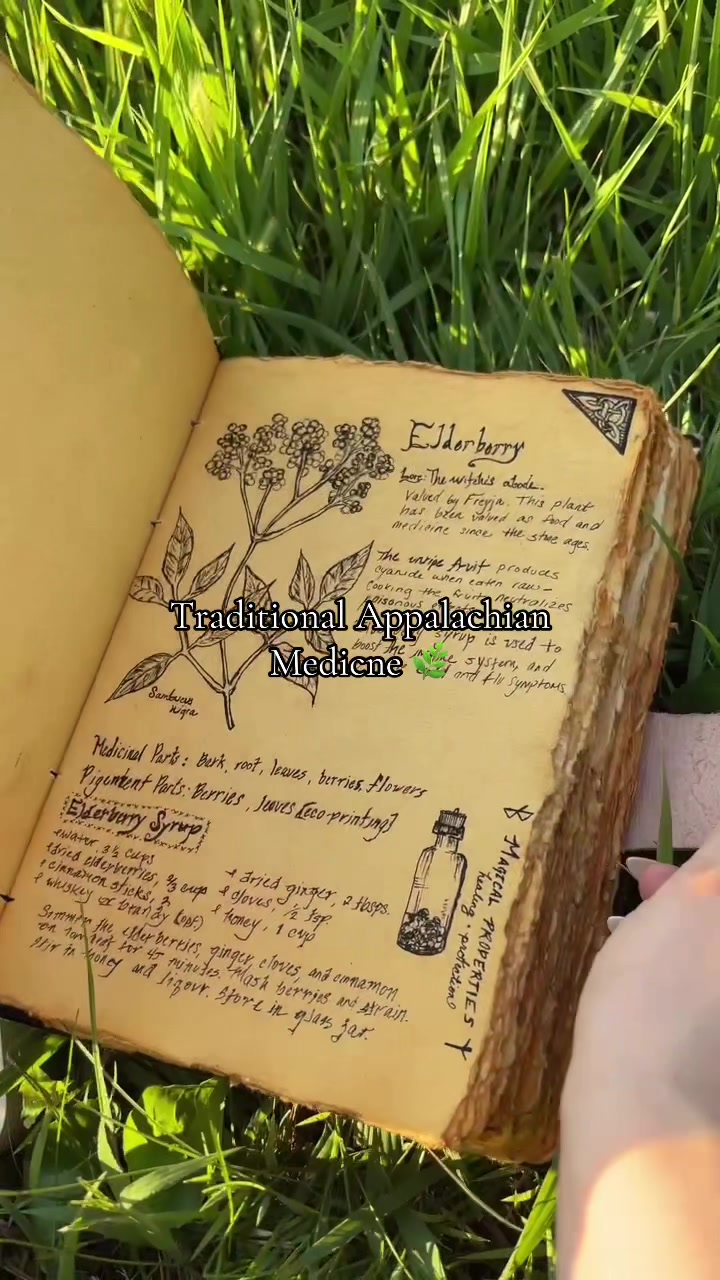 Elderberry
Lore: The witch's abode.
Valued by Freyja. This plant
has been valued as food and
medicine since the stone ages.
The unripe fruit produces
cyanide when eaten raw—
Cooking the fruit neutralizes
Traditional Appalachian
Medicne 🌿
syrup is used to
boost the system, and
and flu symptoms
Sambucus
nigra
Medicinal Parts: Bark, root, leaves, berries, flowers
Pigment Parts: Berries, leaves [eco-printing]
Elderberry Syrup
water, 3 ½ cups
dried elderberries, ⅔ cup
cinnamon sticks, 2
whiskey or brandy (opt)
dried ginger, 2 tbsps.
cloves, ½ tsp.
honey, 1 cup
Simmer the elderberries, ginger, cloves, and cinnamon
on low heat for 45 minutes. Mash berries and strain.
Stir in honey and liquor. Store in glass jar.
MAGICAL PROPERTIES
healing · protection